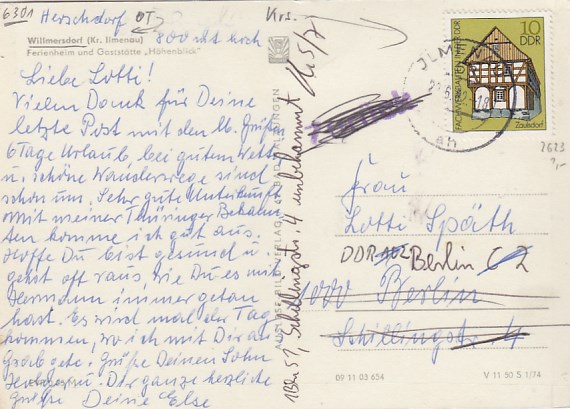 6301 Herschdorf OT
800 mt hoch
Willmersdorf (Kr. Ilmenau)
Ferienheim und Gaststätte „Höhenblick"
Liebe Lotti!
Vielen Dank für Deine
letzte Post mit den lb. Grüßen
6 Tage Urlaub, bei gutem Wetter
u. schöne Wanderwege sind
schon um. Sehr gute Unterkunft
Mit meiner Thüringer Bekann
ten komme ich gut aus.
Hoffe Du bist gesund u.
gehst oft raus, wie Du es mit
Hermann immer getan
hast. Es wird mal der Tag
kommen, wo ich mit Dir an
Grab gehe. Grüße Deinen Sohn
Dir ganze herzliche
Grüße Deine Else
Krs.
Schillingstr. 4 unbekannt
10
DDR
FACHWERKBAUTEN IN DER DDR
Zaulsdorf
2623
Frau
Lotti Späth
DDR 102 Berlin C 2
Berlin
Schillingstr. 4
09 11 03 654
V 11 50 S 1/74